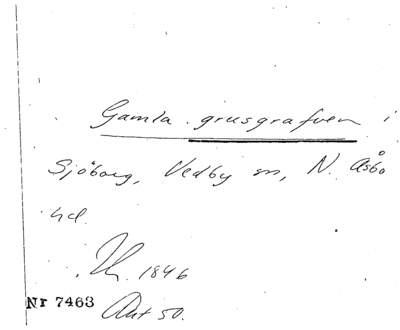 Gamla grusgrafven i
Sjöborg, Vedby sn, N. Åsbo
hd.
Th. 1846
Nr 7463 Ant 50.